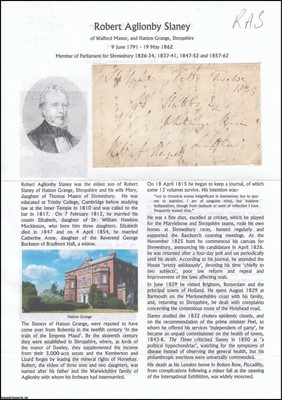 Robert Aglionby Slaney
RAS
of Walford Manor, and Hatton Grange, Shropshire
9 June 1791 - 19 May 1862
Member of Parliament for Shrewsbury 1826-34, 1837-41, 1847-52 and 1857-62
Robert Aglionby Slaney was the eldest son of Robert
Slaney of Hatton Grange, Shropshire and his wife Mary,
daughter of Thomas Mason of Shrewsbury. He was
educated at Trinity College, Cambridge before studying
law at the Inner Temple in 1810 and was called to the
bar in 1817. On 7 February 1812, he married his
cousin Elizabeth, daughter of Dr. William Hawkins
Muckleston, who bore him three daughters. Elizabeth
died in 1847 and on 4 April 1854, he married
Catherine Anne, daughter of the Reverend George
Buckston of Bradburn Hall, a widow.
Hatton Grange
The Slaneys of Hatton Grange, were reputed to have
come over from Bohemia in the twelfth century 'in the
train of the Empress Maud'. By the sixteenth century
they were established in Shropshire, where, as lords of
the manor of Dawley, they supplemented the income
from their 3,000-acre estate and the Kemberton and
Lizard forges by leasing the mineral rights of Horsehay.
Robert, the eldest of three sons and two daughters, was
named after his father and the Warwickshire family of
Aglionby with whom his forbears had intermarried.
On 18 April 1815 he began to keep a journal, of which
some 13 volumes survive. His intention was:
He was a fine shot, excelled at cricket, which he played
for the Marylebone and Shropshire teams, rode his own
horses at Shrewsbury races, hunted regularly and
supported the Baschurch coursing meetings. At the
November 1825 hunt he commenced his canvass for
Shrewsbury, announcing his candidature in April 1826.
he was returned after a four-day poll and sat periodically
until his death. According to his journal, he attended the
House 'pretty assiduously', devoting his time 'chiefly to
two subjects', poor law reform and repeal and
improvement of the laws affecting malt.
In June 1829 he visited Brighton, Rotterdam and the
principal towns of Holland. He spent August 1829 at
Barmouth on the Merionethshire coast with his family,
and, returning to Shropshire, he dealt with complaints
concerning the contentious route of the Holyhead road.
Slaney studied the 1832 cholera epidemic closely, and
on the recommendation of the prime minister Peel, to
whom he offered his services 'independent of party', he
became an unpaid commissioner on the health of towns,
1843-8. The Times criticized Slaney in 1850 as 'a
political hypochondriac', watching for the symptoms of
disease instead of observing the general health, but his
philanthropic exertions were universally commended.
His death at his London home in Bolton Row, Piccadilly,
from complications following a minor fall at the opening
of the International Exhibition, was widely mourned.